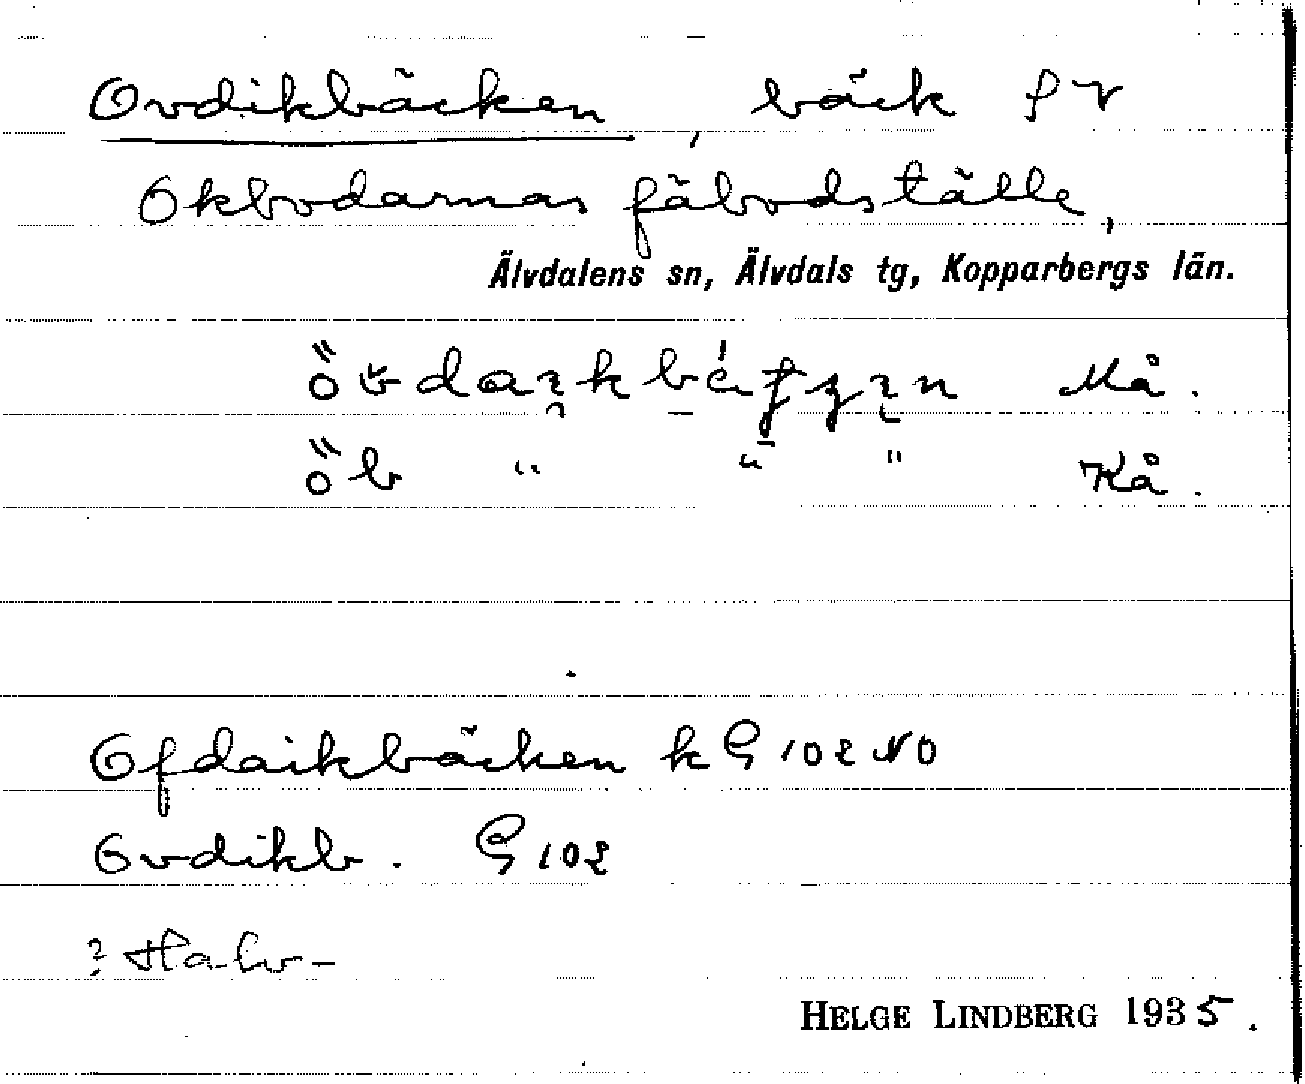 Ovdikbäcken, bäck f V
Okbodarnas fäbodställe,
Älvdalens sn, Älvdals tg, Kopparbergs län.
Må.
öb " " " Kå.
Ofdaikbäcken k G 102 NO
Ovdikb. G 102
? Halv-
HELGE LINDBERG 1935.